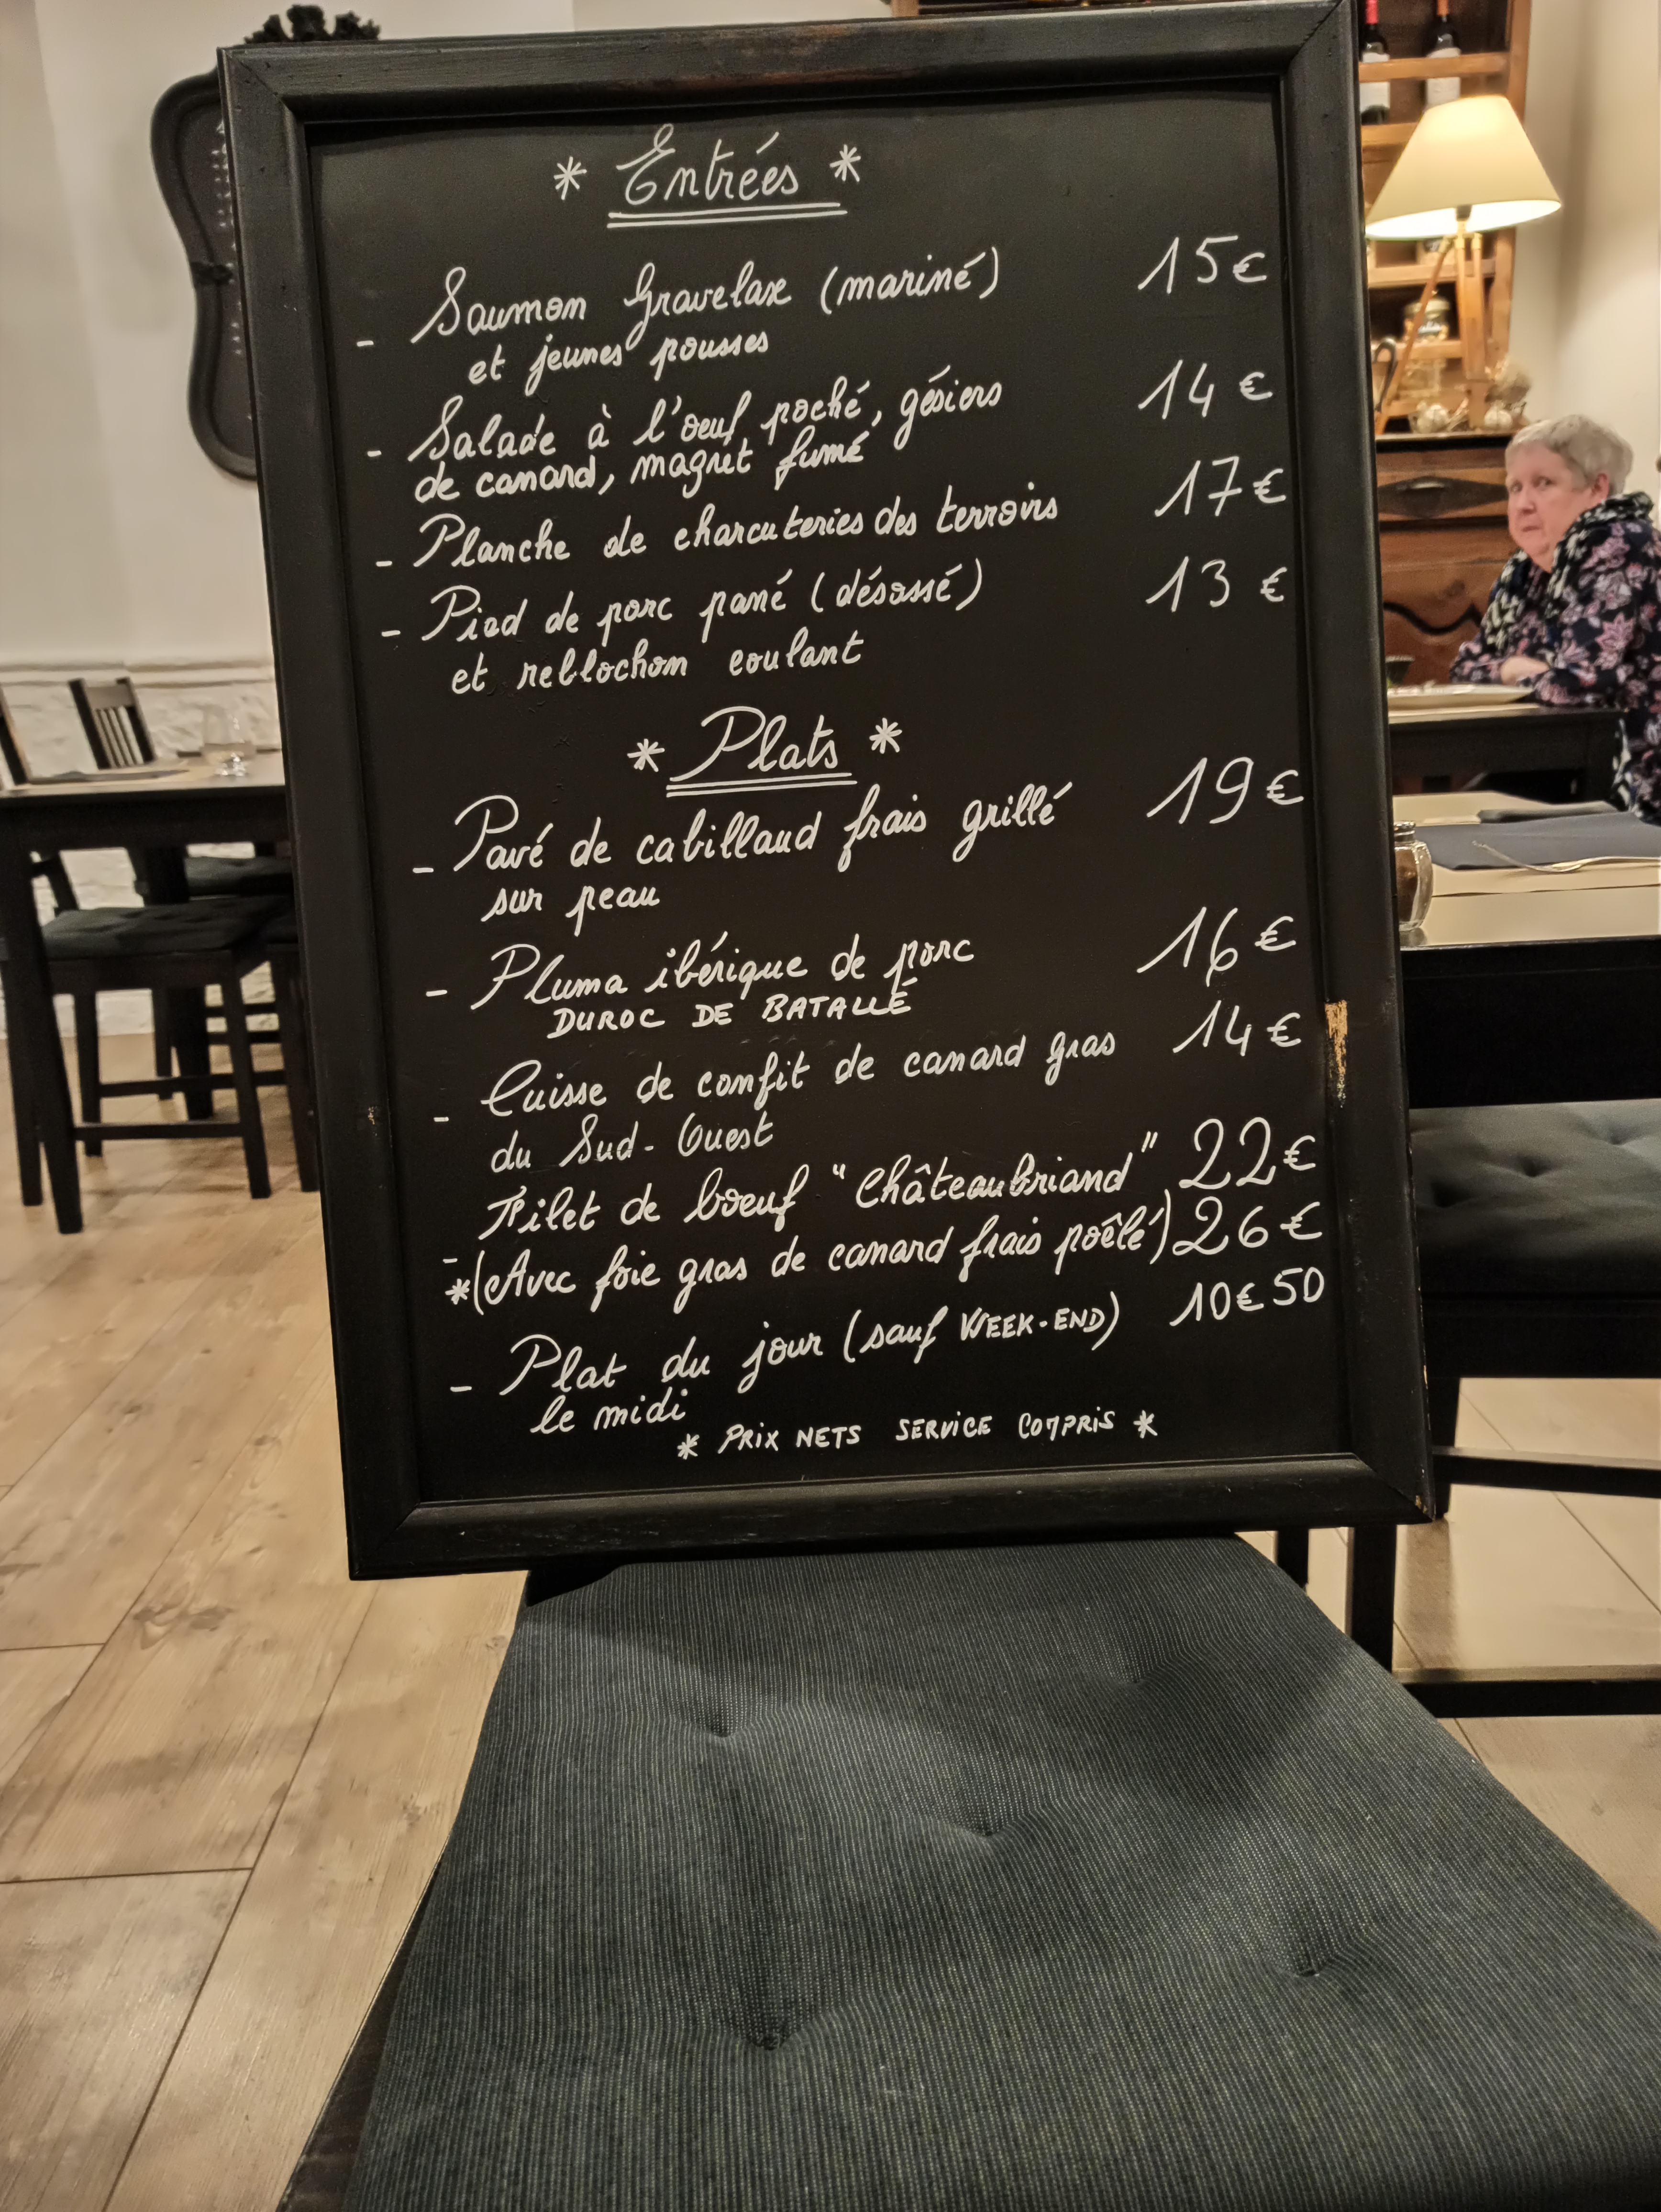 * Entrées *
- Saumon Gravelaxe (mariné) 15€
et jeunes pousses
- Salade à l'oeuf poché, gésiers 14€
de canard, magret fumé
- Planche de charcuteries des terroirs 17€
- Pied de porc pané (désossé) 13€
et reblochon coulant
* Plats *
- Pavé de cabillaud frais grillé 19€
sur peau
- Pluma ibérique de porc 16€
DUROC DE BATALLÉ
- Cuisse de confit de canard gras 14€
du Sud-Ouest
- Filet de boeuf "Châteaubriand" 22€
*(Avec foie gras de canard frais poêlé) 26€
- Plat du jour (sauf WEEK-END) 10€50
le midi
* PRIX NETS SERVICE COMPRIS *